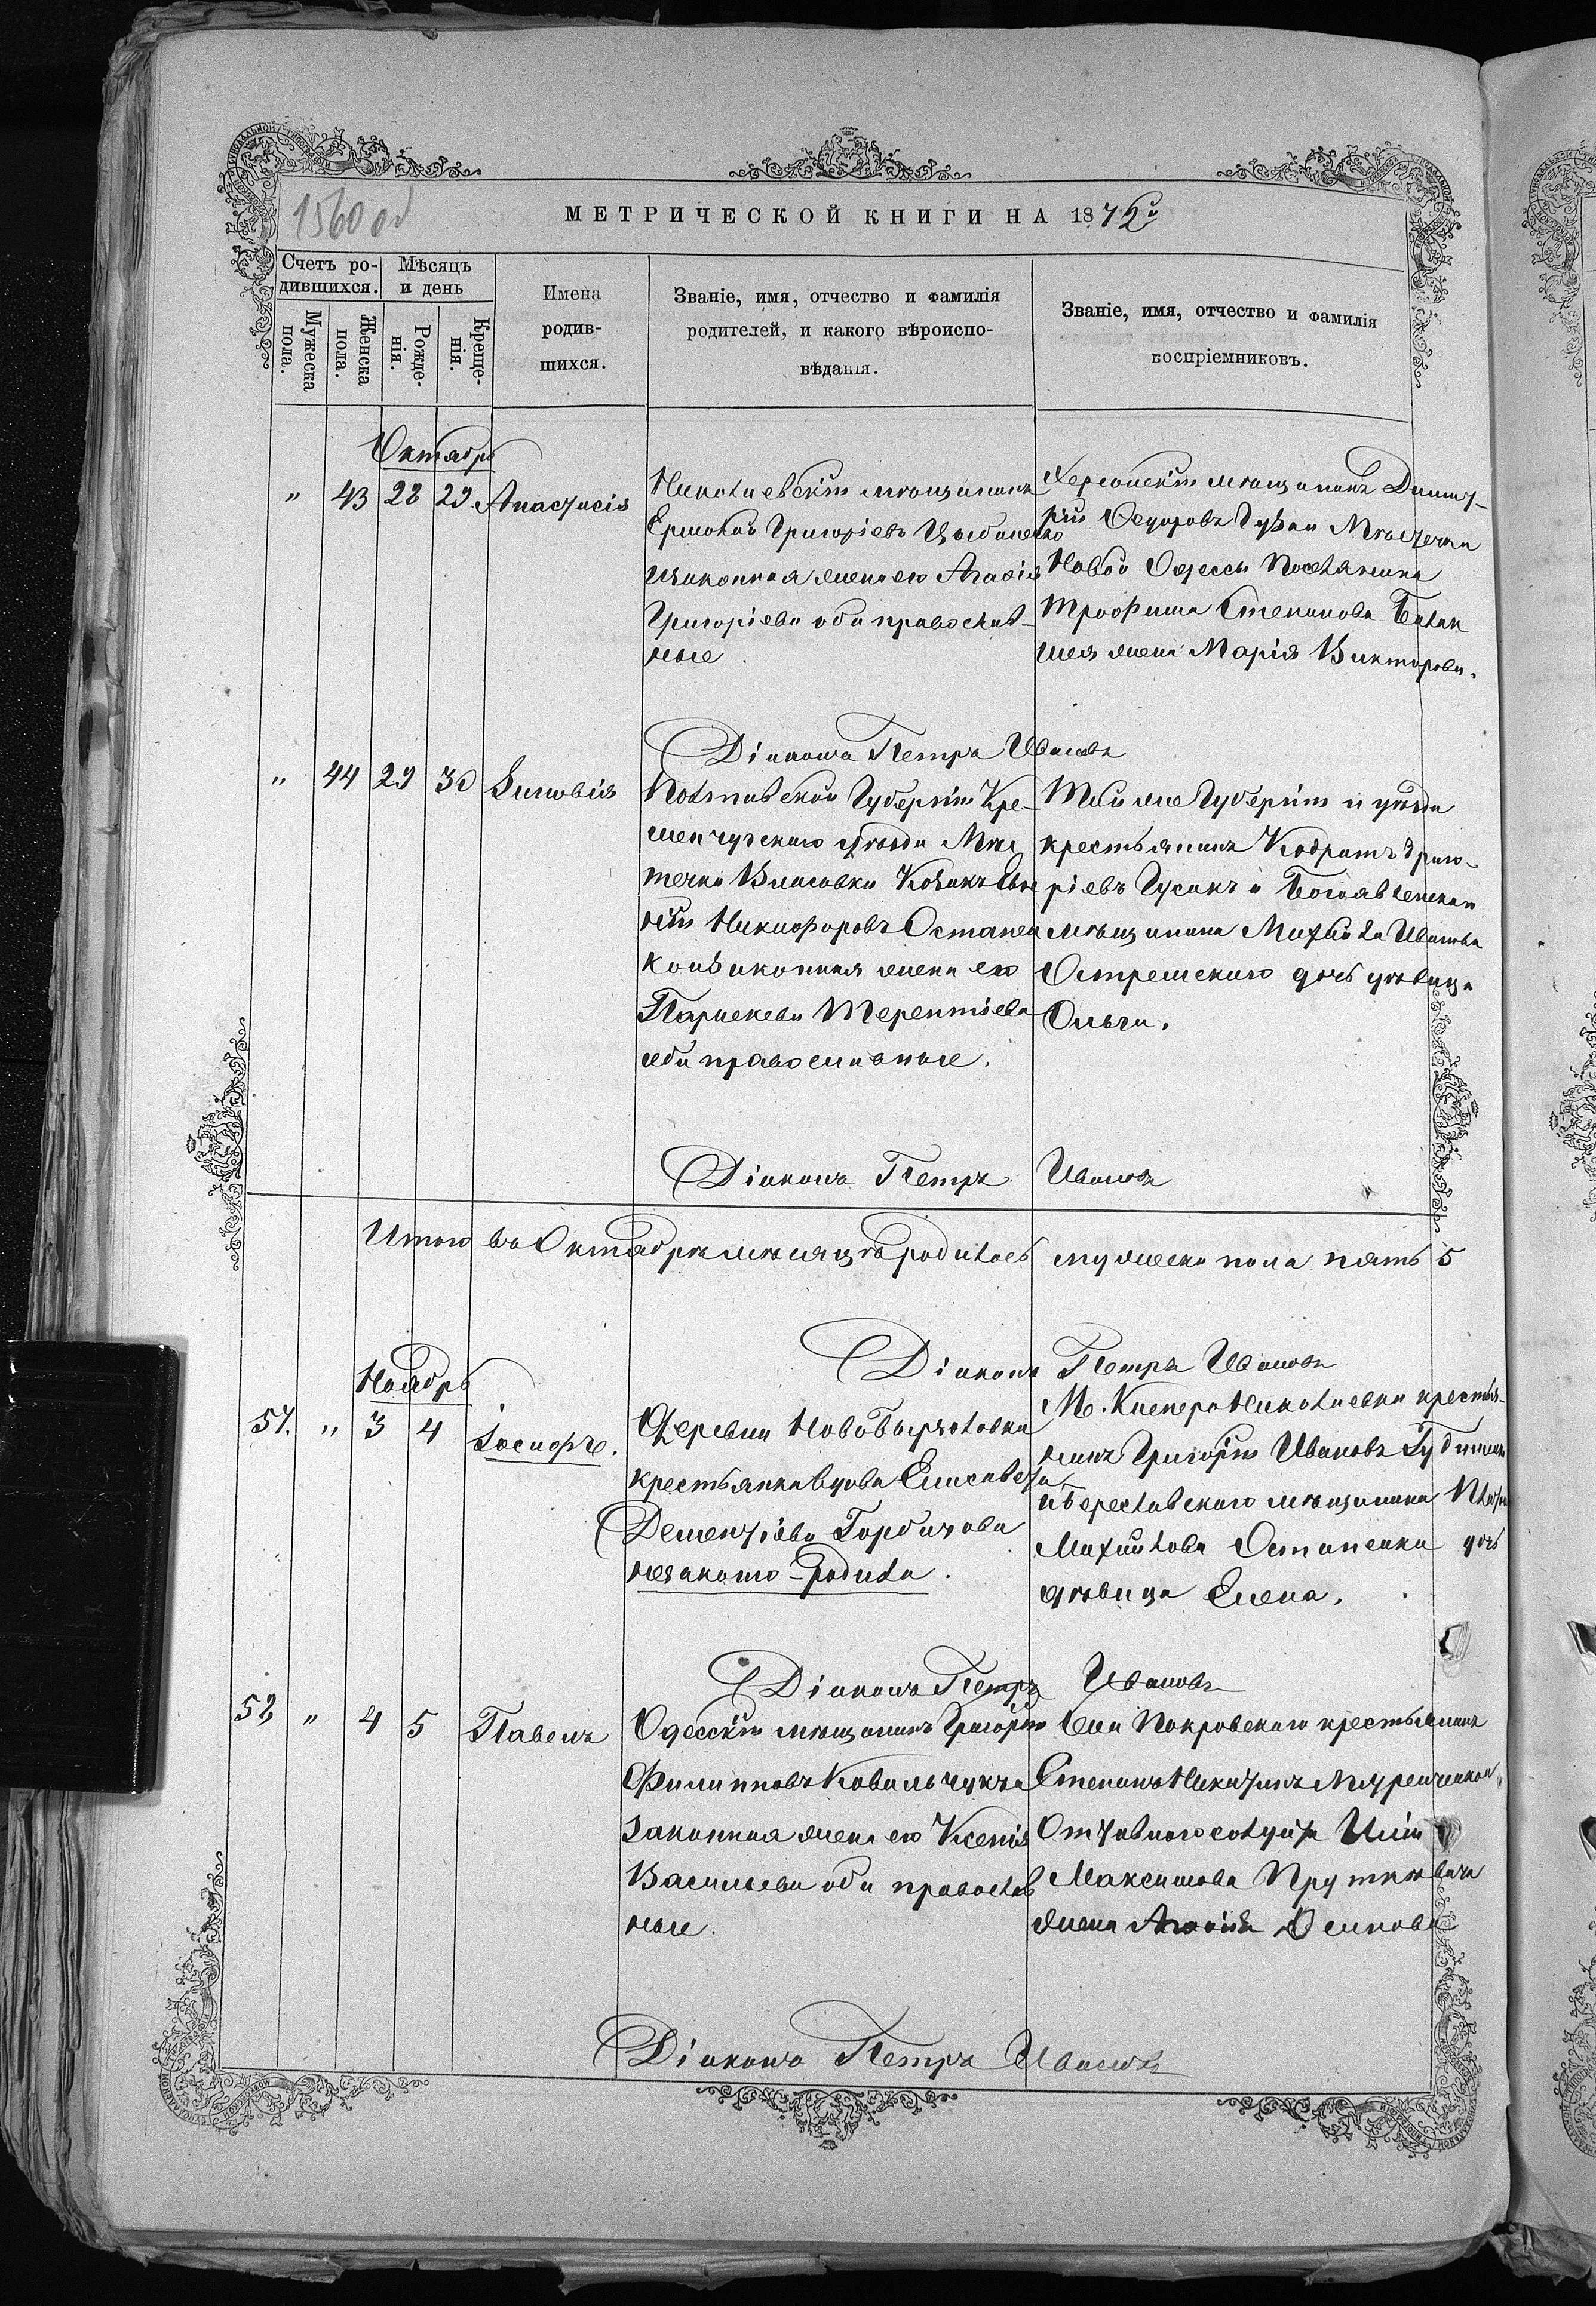 1560 об
МЕТРИЧЕСКОЙ КНИГИ НА 1872й
Счетъ ро-
дившихся.
Мѣсяцъ
и день
Мужеска
пола.
Женска
пола.
Рожде-
нія.
Креще-
нія.
Имена
родив-
шихся.
Званіе, имя, отчество и фамилія
родителей, и какого вѣроиспо-
вѣданія.
Званіе, имя, отчество и фамилія
воспріемниковъ.
Октябрь
" 43 28 29 Анастасія
Николаевскій мѣщанинъ
Ермолай Григоріевъ
изаконная жена его Агафія
Григоріева оба православ-
ные.
Херсонскій мѣщанинъ Димит-
рій Ѳедоровъ Мѣстечка
Новой Одессы Поселянина
Трофима Степанова
жена Марія Викторова.
Діаконъ Петръ Ивановъ
" 44 29 30 Зиновія
Полтавской Губерніи Кре-
менчугскаго уѣзда Мѣс
течка Власовки Козакъ
ній Никифоровъ Остапен
ко изаконная жена его
Параскева Терентіева
оба православные.
Той же Губерніи и уѣзда
крестьянинъ Кодратъ Григо-
ріевъ Гусакъ и Богоявленскаго
мѣщанина Михаила Иванова
Острешскаго дочь дѣвица
Ольга.
Діаконъ Петръ Ивановъ
Итого въ Октябрѣ мѣсяцѣ родилось мужеска пола пять 5
Діаконъ Петръ Ивановъ
Ноябрь
51. " 3 4 Іосифъ.
Деревни
крестьянка вдова Елисавета
Дементіева Горбачова
незаконно-родила.
М. крестья-
нинъ Григорій Ивановъ
иБереславскаго мѣщанина
Михайлова Остапенка дочь
дѣвица Елена.
Діаконъ Петръ Ивановъ
52 " 4 5 Павелъ
Одесскій мѣщанинъ Григорій
Филипповъ Ковальчукъ и
законная жена его Ксенія
Васильева оба православ
ные.
Села Покровскаго крестьянинъ
Степанъ Никитинъ
Отставнаго солдата Иліи
Максимова
жена Агафія Осипова
Діаконъ Петръ Ивановъ